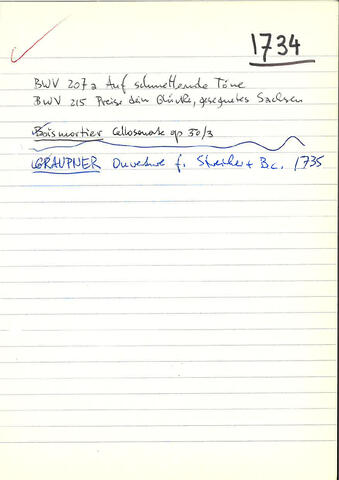 1734
BWV 207a Auf schmetternde Töne
BWV 215 Preise dein Glücke, gesegnetes Sachsen
Boismortier Cellosonate op 50/3
GRAUPNER Ouverture f. Streicher + Bc. 1735